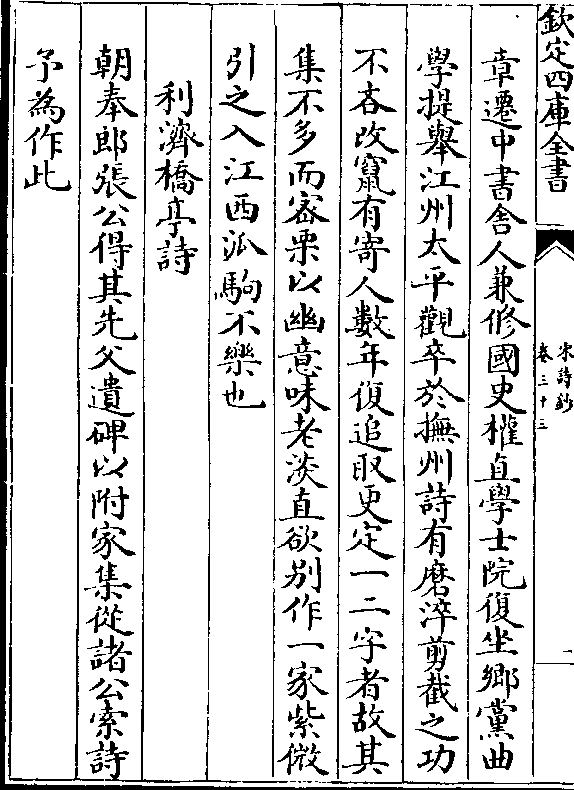 欽定四庫全書
宋詩鈔
卷三十三
二
章遷中書舍人兼修國史權直學士院復坐鄉黨曲
學提舉江州太平觀卒於撫州詩有磨淬剪截之功
不吝改竄有寄人數年復追取更定一二字者故其
集不多而宻栗以幽意味老淡直欲别作一家紫微
引之入江西派駒不樂也
利濟橋亭詩
朝奉郎張公得其先父遺碑以附家集從諸公索詩
予為作此